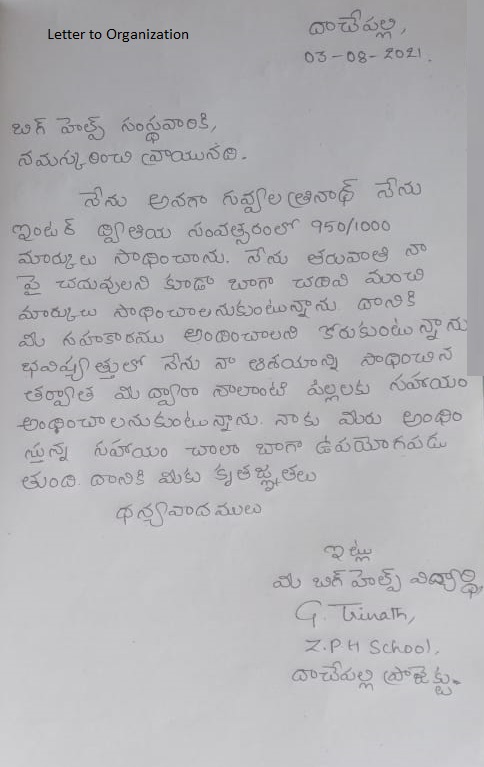 Letter to Organization
దాచేపల్లి,
03-08-2021.
బిగ్ హెల్ప్ సంస్థవారికి,
నమస్కరించి వ్రాయునది.
నేను అనగా గువ్వల త్రినాథ్ నేను
ఇంటర్ ద్వితీయ సంవత్సరంలో 950/1000
మార్కులు సాధించాను. నేను తరువాతి నా
పై చదువులని కూడా బాగా చదివి మంచి
మార్కులు సాధించాలనుకుంటున్నాను దానికి
మీ సహకారము అందించాలని కోరుకుంటున్నాను
భవిష్యత్తులో నేను నా ఆశయాన్ని సాధించిన
తర్వాత మీ ద్వారా నాలాంటి పిల్లలకు సహాయం
అందించాలనుకుంటున్నాను. నాకు మీరు అందిం
స్తున్న సహాయం చాలా బాగా ఉపయోగపడు
తుంది. దానికి మీకు కృతజ్ఞతలు
ధన్యవాదములు
ఇట్లు
మీ బిగ్ హెల్ప్ విద్యార్థి,
G. Trinath,
Z.P.H School,
దాచేపల్లి ప్రాజెక్టు.